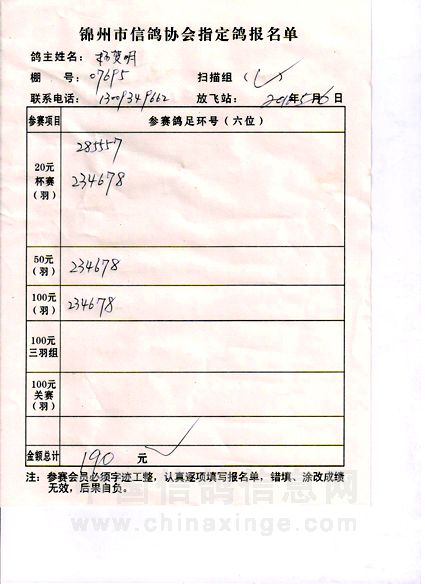 锦州市信鸽协会指定鸽报名单
鸽主姓名：杨贺明
棚 号：07695 扫描组（✓）
联系电话：13009349662 放飞站： 年5月6日
参赛项目 参赛鸽足环号（六位）
20元
杯赛
（羽）
285557
234678
50元
（羽）
234678
100元
（羽）
234678
100元
三羽组
100元
关赛
（羽）
金额总计 190 元
注：参赛会员必须字迹工整，认真逐项填写报名单，错填、涂改成绩
无效，后果自负。
中国信鸽信息网
www.chinaxinge.com